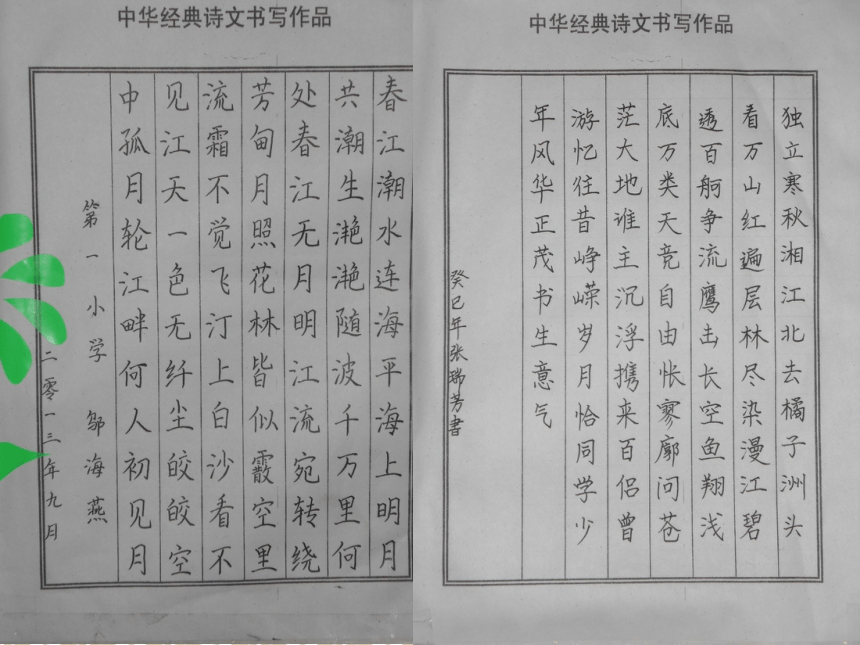 中华经典诗文书写作品
春江潮水连海平海上明月
共潮生滟滟随波千万里何
处春江无月明江流宛转绕
芳甸月照花林皆似霰空里
流霜不觉飞汀上白沙看不
见江天一色无纤尘皎皎空
中孤月轮江畔何人初见月
第一小学 邹海燕
二零一三年九月
中华经典诗文书写作品
独立寒秋湘江北去橘子洲头
看万山红遍层林尽染漫江碧
透百舸争流鹰击长空鱼翔浅
底万类天竞自由怅寥廓问苍
茫大地谁主沉浮携来百侣曾
游忆往昔峥嵘岁月恰同学少
年风华正茂书生意气
癸巳年张瑞芳书